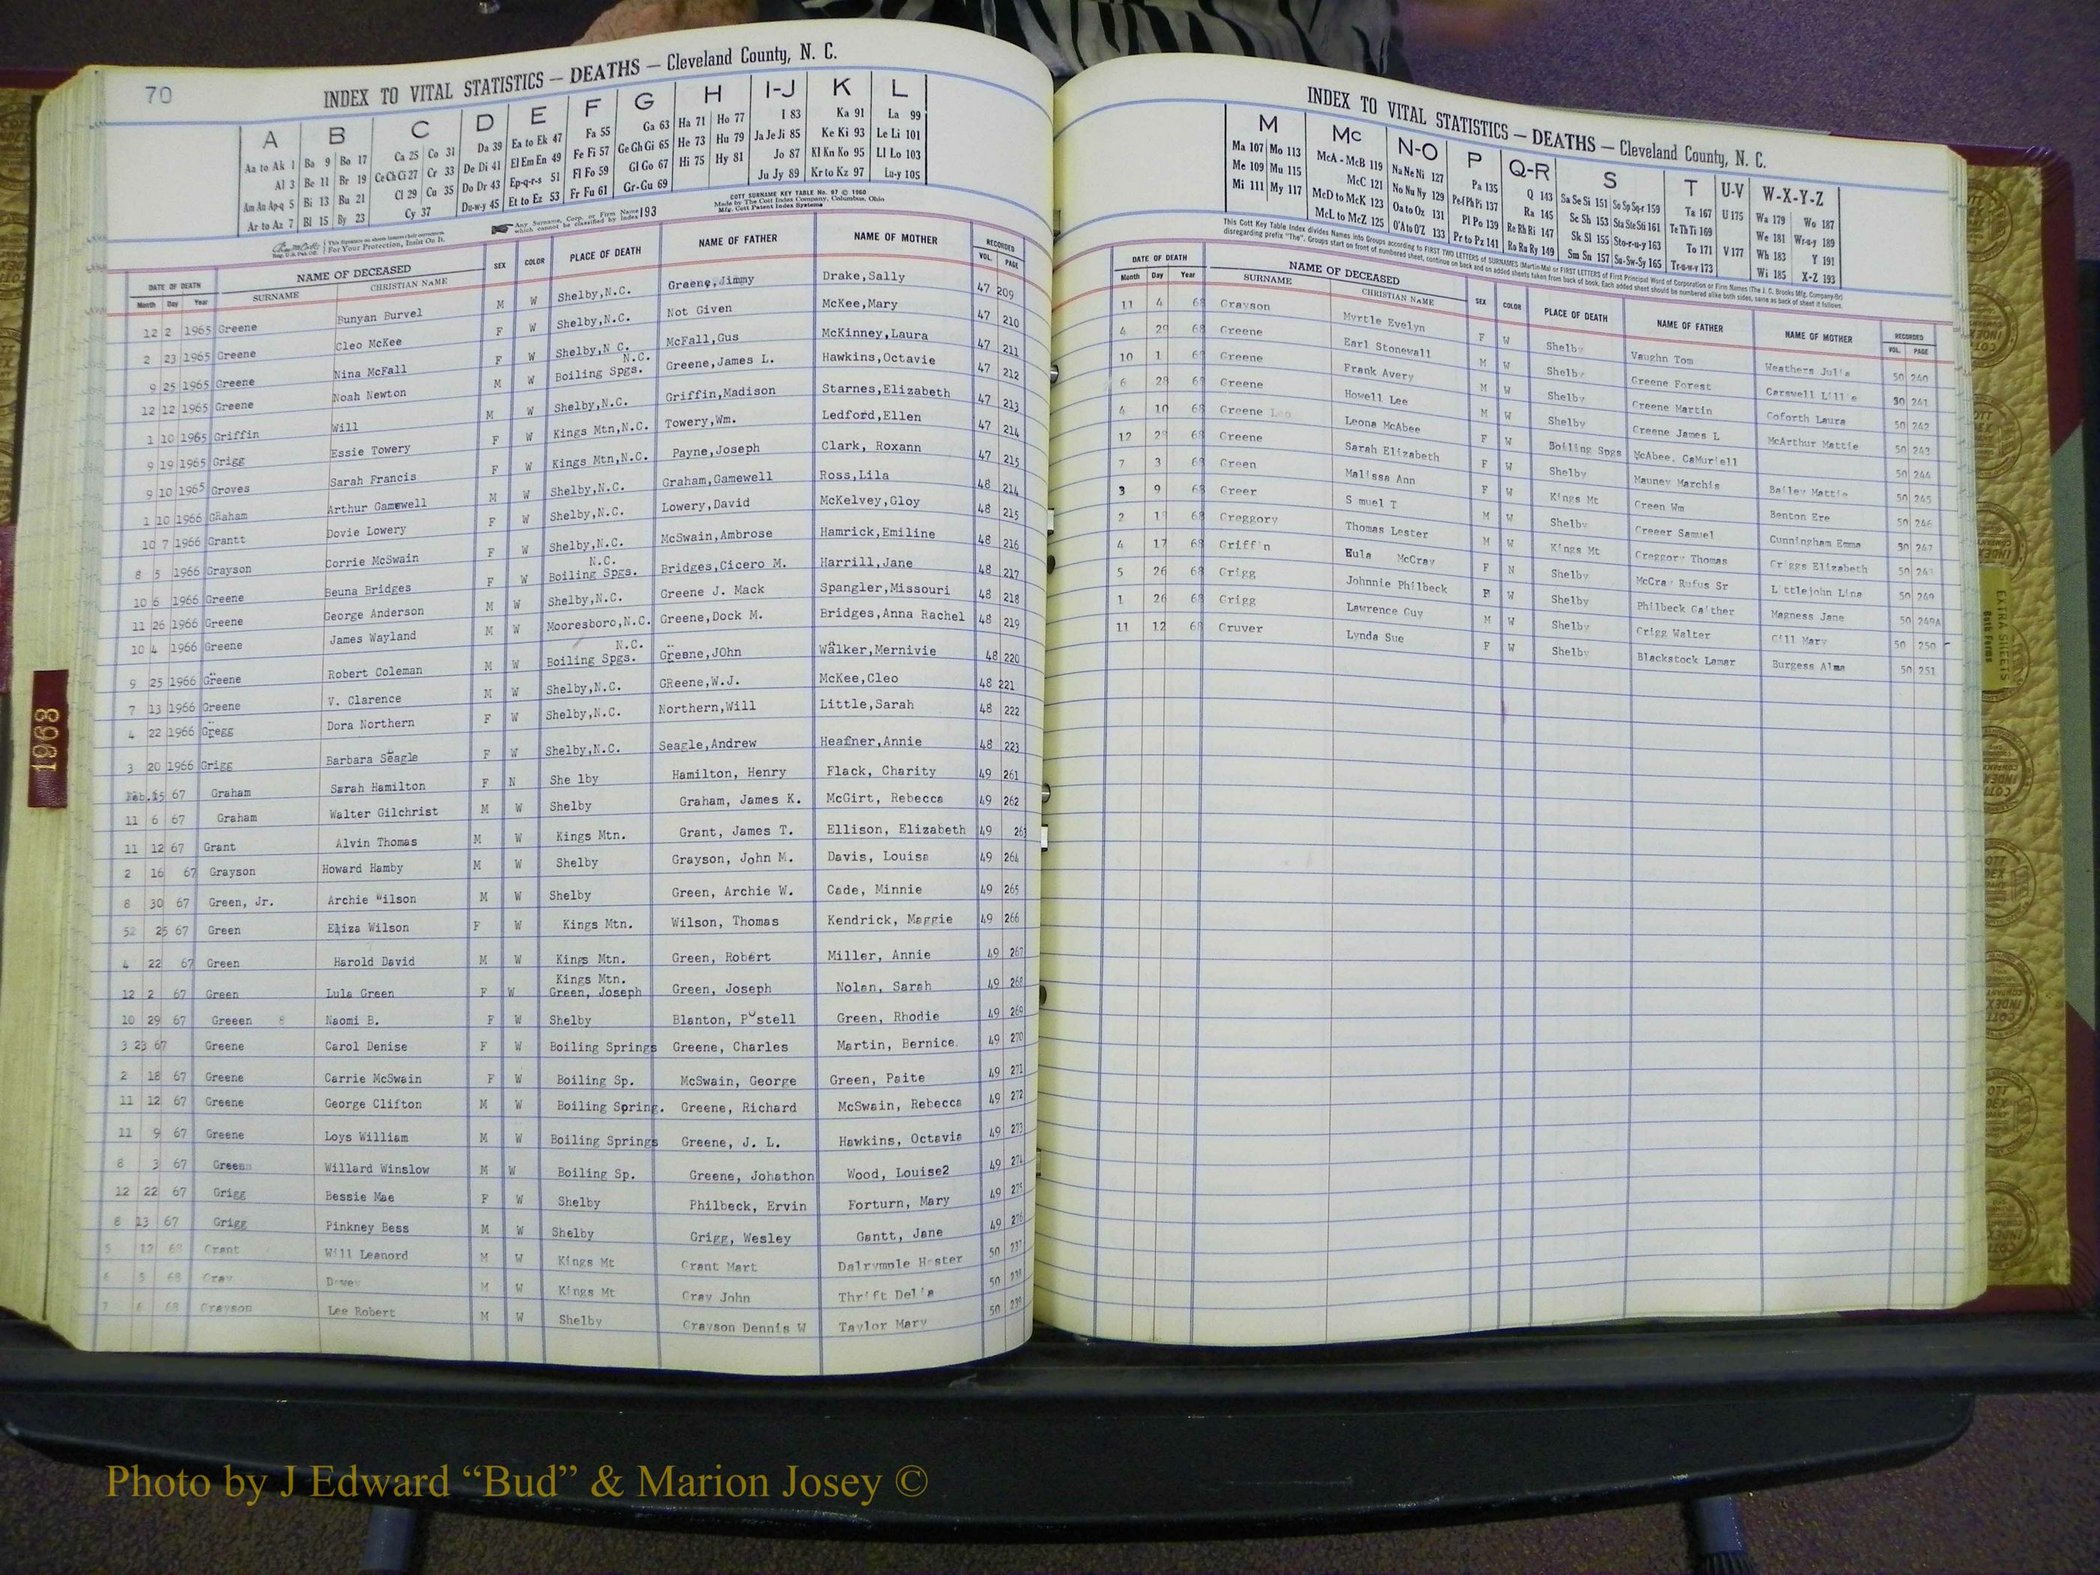 70
INDEX TO VITAL STATISTICS — DEATHS — Cleveland County, N. C.
A B C D E F G H I-J K L
Aa to Ak 1 Ba 9 Bo 17 Ca 25 Co 31 Da 39 Ea to Ek 47 Fa 55 Ga 63 Ha 71 Ho 77 I 83 Ka 91 La 99
Al 3 Be 11 Br 19 Ce Ch Ci 27 Cr 33 De Di 41 El Em En 49 Fe Fi 57 Ge Gh Gi 65 He 73 Hu 79 Ja Je Ji 85 Ke Ki 93 Le Li 101
Am An Ap-q 5 Bi 13 Bu 21 Cl 29 Cu 35 Do Dr 43 Ep-q-r-s 51 Fl Fo 59 Gl Go 67 Hi 75 Hy 81 Jo 87 Kl Kn Ko 95 Ll Lo 103
Ar to Az 7 Bl 15 By 23 Cy 37 Du-w-y 45 Et to Ez 53 Fr Fu 61 Gr-Gu 69 Ju Jy 89 Kr to Kz 97 Lu-y 105
COTT SURNAME KEY TABLE No. 97 © 1960
Made by The Cott Index Company, Columbus, Ohio
Mfg. Cott Patent Index Systems
Any Surname, Corp. or Firm Name which cannot be classified by Index 193
For Your Protection, Insist On It.
DATE OF DEATH NAME OF DECEASED SEX COLOR PLACE OF DEATH NAME OF FATHER NAME OF MOTHER RECORDED
Month Day Year SURNAME CHRISTIAN NAME VOL. PAGE
12 2 1965 Greene Bunyan Burvel M W Shelby,N.C. Greene,Jimmy Drake,Sally 47 209
2 23 1965 Greene Cleo McKee F W Shelby,N.C. Not Given McKee,Mary 47 210
9 25 1965 Greene Nina McFall F W Shelby,N C. McFall,Gus McKinney,Laura 47 211
12 12 1965 Greene Noah Newton M W Boiling Spgs. N.C. Greene,James L. Hawkins,Octavie 47 212
1 10 1965 Griffin Will M W Shelby,N.C. Griffin,Madison Starnes,Elizabeth 47 213
9 19 1965 Grigg Essie Towery F W Kings Mtn,N.C. Towery,Wm. Ledford,Ellen 47 214
9 10 1965 Groves Sarah Francis F W Kings Mtn,N.C. Payne,Joseph Clark, Roxann 47 215
1 10 1966 Graham Arthur Gamewell M W Shelby,N.C. Graham,Gamewell Ross,Lila 48 214
10 7 1966 Grantt Dovie Lowery F W Shelby,N.C. Lowery,David McKelvey,Gloy 48 215
8 5 1966 Grayson Corrie McSwain F W Shelby,N.C. McSwain,Ambrose Hamrick,Emiline 48 216
10 6 1966 Greene Beuna Bridges F W Boiling Spgs. N.C. Bridges,Cicero M. Harrill,Jane 48 217
11 26 1966 Greene George Anderson M W Shelby,N.C. Greene J. Mack Spangler,Missouri 48 218
10 4 1966 Greene James Wayland M W Mooresboro,N.C. Greene,Dock M. Bridges,Anna Rachel 48 219
9 25 1966 Greene Robert Coleman M W Boiling Spgs. N.C. Greene,JOhn Walker,Mernivie 48 220
7 13 1966 Greene V. Clarence M W Shelby,N.C. GReene,W.J. McKee,Cleo 48 221
4 22 1966 Gregg Dora Northern F W Shelby,N.C. Northern,Will Little,Sarah 48 222
3 20 1966 Grigg Barbara Seagle F W Shelby,N.C. Seagle,Andrew Heafner,Annie 48 223
Feb.15 67 Graham Sarah Hamilton F N She lby Hamilton, Henry Flack, Charity 49 261
11 6 67 Graham Walter Gilchrist M W Shelby Graham, James K. McGirt, Rebecca 49 262
11 12 67 Grant Alvin Thomas M W Kings Mtn. Grant, James T. Ellison, Elizabeth 49 263
2 16 67 Grayson Howard Hamby M W Shelby Grayson, John M. Davis, Louise 49 264
8 30 67 Green, Jr. Archie Wilson M W Shelby Green, Archie W. Cade, Minnie 49 265
52 25 67 Green Eliza Wilson F W Kings Mtn. Wilson, Thomas Kendrick, Maggie 49 266
4 22 67 Green Harold David M W Kings Mtn. Green, Robert Miller, Annie 49 267
12 2 67 Green Lula Green F W Kings Mtn. Green, Joseph Green, Joseph Nolan, Sarah 49 268
10 29 67 Greeen 8 Naomi B. F W Shelby Blanton, Postell Green, Rhodie 49 269
3 23 67 Greene Carol Denise F W Boiling Springs Greene, Charles Martin, Bernice 49 270
2 18 67 Greene Carrie McSwain F W Boiling Sp. McSwain, George Green, Paite 49 271
11 12 67 Greene George Clifton M W Boiling Spring. Greene, Richard McSwain, Rebecca 49 272
11 9 67 Greene Loys William M W Boiling Springs Greene, J. L. Hawkins, Octavia 49 273
8 3 67 Greene Willard Winslow M W Boiling Sp. Greene, Johathon Wood, Louise2 49 274
12 22 67 Grigg Bessie Mae F W Shelby Philbeck, Ervin Forturn, Mary 49 275
8 13 67 Grigg Pinkney Bess M W Shelby Grigg, Wesley Gantt, Jane 49 276
5 12 68 Grant Will Leanord M W Kings Mt Grant Mart Dalrymple Hester 50 237
6 5 68 Gray Dewey M W Kings Mt Gray John Thrift Delia 50 238
7 6 68 Grayson Lee Robert M W Shelby Grayson Dennis W Taylor Mary 50 239
INDEX TO VITAL STATISTICS — DEATHS — Cleveland County, N. C.
M Mc N-O P Q-R S T U-V W-X-Y-Z
Ma 107 Mo 113 McA - McB 119 Na Ne Ni 127 Pa 135 Q 143 Sa Se Si 151 So Sp Sq-r 159 Ta 167 U 175 Wa 179 Wo 187
Me 109 Mu 115 McC 121 No Nu Ny 129 Pe-f Ph Pi 137 Ra 145 Sc Sh 153 Sta Ste Sti 161 Te Th Ti 169 We 181 Wr-u-y 189
Mi 111 My 117 McD to McK 123 Oa to Oz 131 Pl Po 139 Re Rh Ri 147 Sk Sl 155 Sto-r-u-y 163 To 171 V 177 Wh 183 Y 191
McL to McZ 125 O'A to O'Z 133 Pr to Pz 141 Ro Ru Ry 149 Sm Sn 157 Su-Sw-Sy 165 Tr-u-w-y 173 Wi 185 X-Z 193
This Cott Key Table Index divides Names into Groups according to FIRST TWO LETTERS of SURNAMES (Martin-Ma) or FIRST LETTERS of First Principal Word of Corporation or Firm Names (The J. C. Brooks Mfg. Company-Br)
disregarding prefix "The". Groups start on front of numbered sheet, continue on back and on added sheets taken from back of book. Each added sheet should be numbered alike both sides, same as back of sheet it follows.
DATE OF DEATH NAME OF DECEASED SEX COLOR PLACE OF DEATH NAME OF FATHER NAME OF MOTHER RECORDED
Month Day Year SURNAME CHRISTIAN NAME VOL. PAGE
11 4 68 Grayson Myrtle Evelyn F W Shelby Vaughn Tom Weathers Julia 50 240
4 29 68 Greene Earl Stonewall M W Shelby Greene Forest Carswell Lillie 50 241
10 1 68 Greene Frank Avery M W Shelby Greene Martin Goforth Laura 50 242
6 28 68 Greene Howell Lee M W Shelby Greene James L McArthur Mattie 50 243
4 10 68 Greene Leona McAbee F W Boiling Spgs McAbee, CaMuriell 50 244
12 29 68 Greene Sarah Elizabeth F W Shelby Mauney Marchis Bailey Mattie 50 245
7 3 68 Green Malissa Ann F W Kings Mt Green Wm Benton Ere 50 246
3 9 68 Greer S muel T M W Shelby Greeer Samuel Cunningham Emma 50 247
2 68 Greggory Thomas Lester M W Kings Mt Greggory Thomas Griggs Elizabeth 50
4 17 68 Griffin Eula McCray F N Shelby McCray Rufus Sr Littlejohn Lina 50 249
5 26 68 Grigg Johnnie Philbeck W Shelby Philbeck Gaither Magness Jane 50 249A
1 26 68 Grigg Lawrence Guy M W Shelby Grigg Walter Gill Mary 50 250
11 12 68 Gruver Lynda Sue F W Shelby Blackstock Lamar Burgess Alma 50 251
1968
EXTRA SHEETS
Photo by J Edward “Bud” & Marion Josey ©